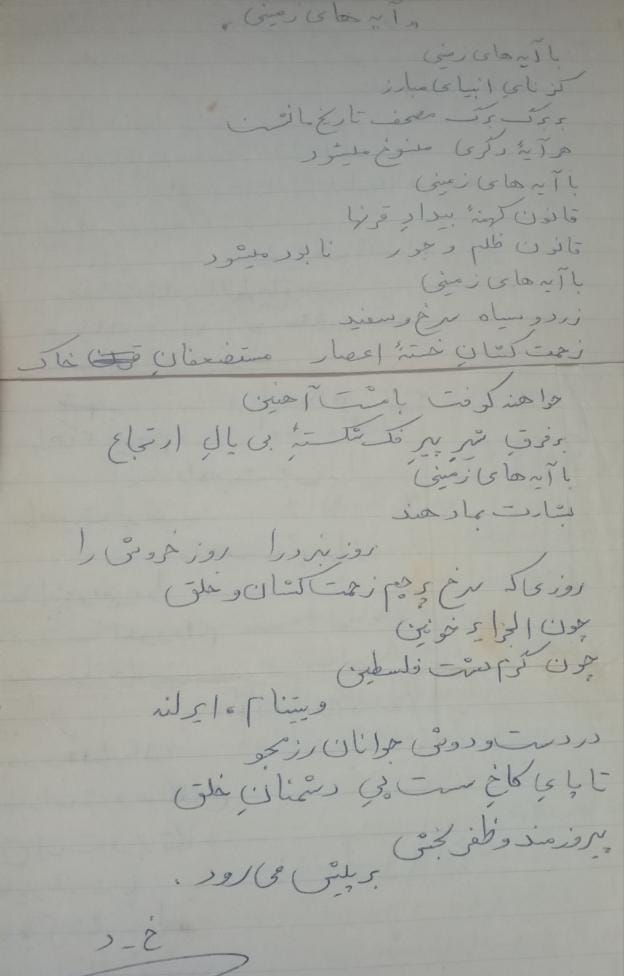 « آیه های زمینی »
با آیه های زمینی
کز نای انبیای مبارز
بر برگ برگ مصحف تاریخ ما نشست
هر آیهٔ دگری منسوخ میشود
با آیه های زمینی
قانون کهنهٔ بیدادِ قرنها
قانون ظلم و جور نابود میشود
با آیه های زمینی
زرد و سیاه سرخ و سفید
زحمت کشانِ خستهٔ اعصار مستضعفانِ خاک
خواهند کوفت با مشت آهنین
بر فرقِ شیرِ پیرِ فک شکستهٔ بی یالِ ارتجاع
با آیه های زمینی
بشارت بما دهند
روز نبرد را روز خروش را
روزی که سرخ پرچم زحمت کشان و خلق
چون الجزایر خونین
چون گرم دشت فلسطین
ویتنام، ایرلند
در دست و دوش جوانان رزمجو
تا پایِ کاخِ سست پیِ دشمنانِ خلق
پیروزمند و ظفربخش
بر پیش می رود .
خ - د